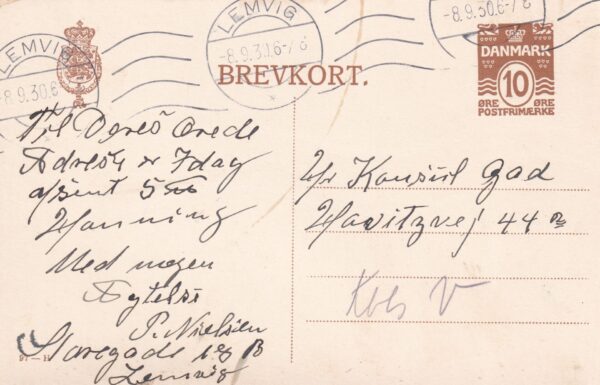 LEMVIG
-8.9.30.6-7 6
LEMVIG
-8.9.30.6-7 6
-8.9.30.6-7 6
BREVKORT.
DANMARK
10
ØRE ØRE
POSTFRIMÆRKE
Til Deres Ærede
Adresse er Idag
afsent 5
Hanning
Med megen
Agtelse
P. Nielsen
Storegade 18 B
Lemvig
97 - H
Hr Konsul Gad
44
Kbh V